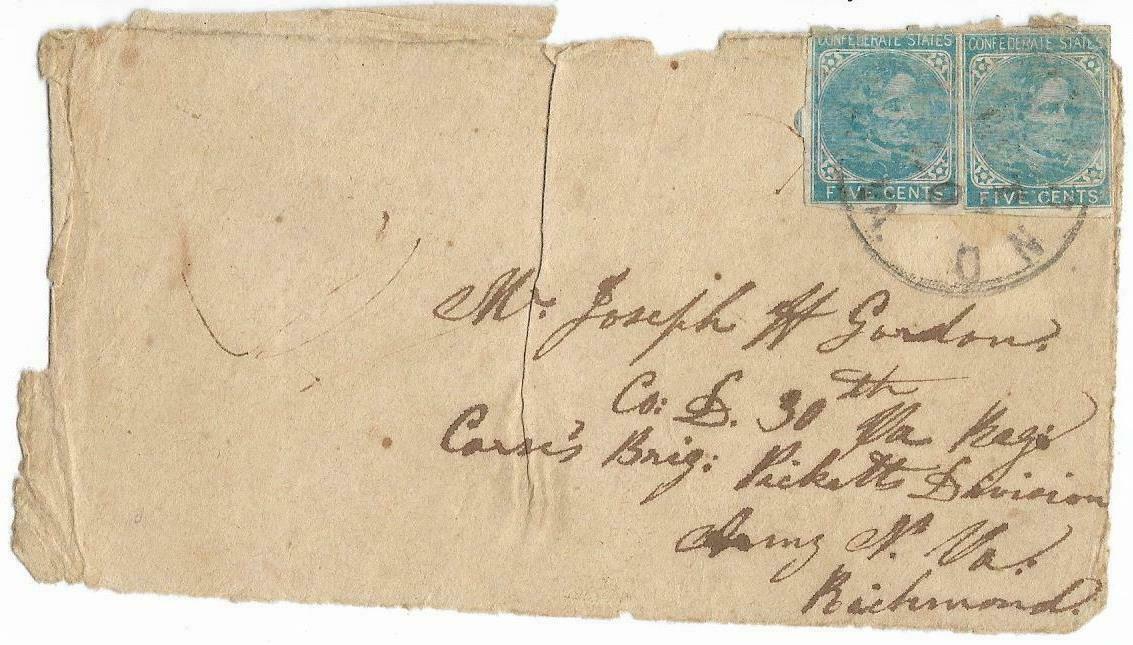 CONFEDERATE STATES CONFEDERATE STATES
FIVE CENTS FIVE CENTS
Mr. Joseph H Gordon.
Co: D. 30th Va Reg:
Corse's Brig: Picketts Division
Army N. Va.
Richmond.